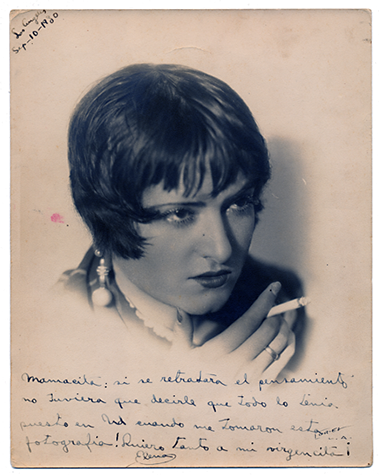 Los Angeles
Sep-10-1930
Mamacita; si se retratara el pensamiento
no tuviera que decirle que todo lo tenia
puesto en Ud cuando me tomaron esta
fotografia! Quiero tanto a mi virgencita!